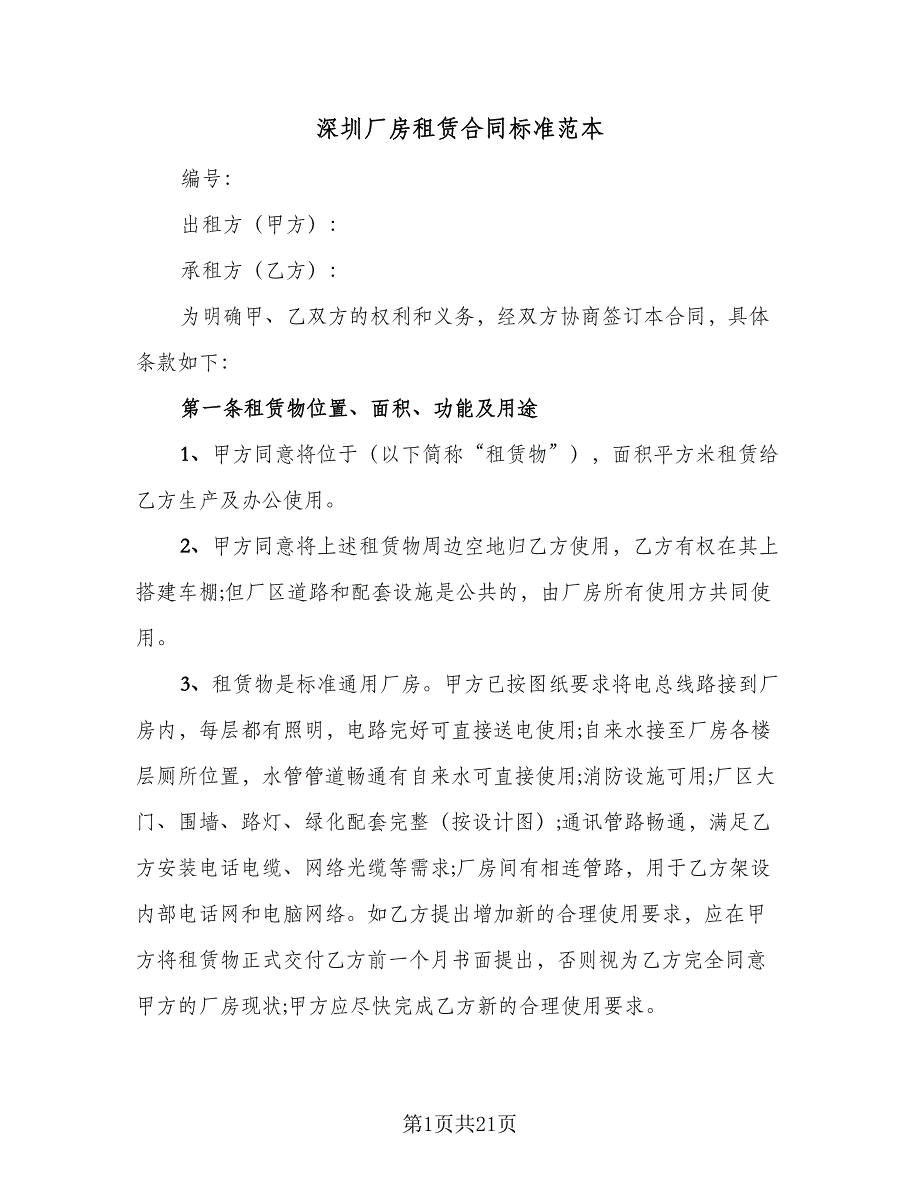 深圳厂房租赁合同标准范本
编号：
出租方（甲方）：
承租方（乙方）：
为明确甲、乙双方的权利和义务，经双方协商签订本合同，具体
条款如下：
第一条租赁物位置、面积、功能及用途
1、甲方同意将位于（以下简称“租赁物”），面积平方米租赁给
乙方生产及办公使用。
2、甲方同意将上述租赁物周边空地归乙方使用，乙方有权在其上
搭建车棚;但厂区道路和配套设施是公共的，由厂房所有使用方共同使
用。
3、租赁物是标准通用厂房。甲方已按图纸要求将电总线路接到厂
房内，每层都有照明，电路完好可直接送电使用;自来水接至厂房各楼
层厕所位置，水管管道畅通有自来水可直接使用;消防设施可用;厂区大
门、围墙、路灯、绿化配套完整（按设计图）;通讯管路畅通，满足乙
方安装电话电缆、网络光缆等需求;厂房间有相连管路，用于乙方架设
内部电话网和电脑网络。如乙方提出增加新的合理使用要求，应在甲
方将租赁物正式交付乙方前一个月书面提出，否则视为乙方完全同意
甲方的厂房现状;甲方应尽快完成乙方新的合理使用要求。
第1页共21页